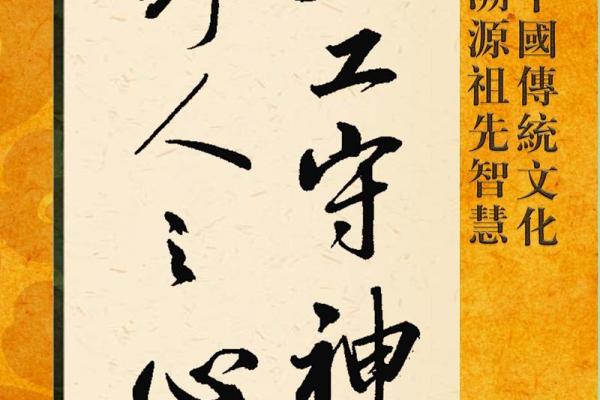 中國傳統文化
溯源祖先智慧
工守神
人之心